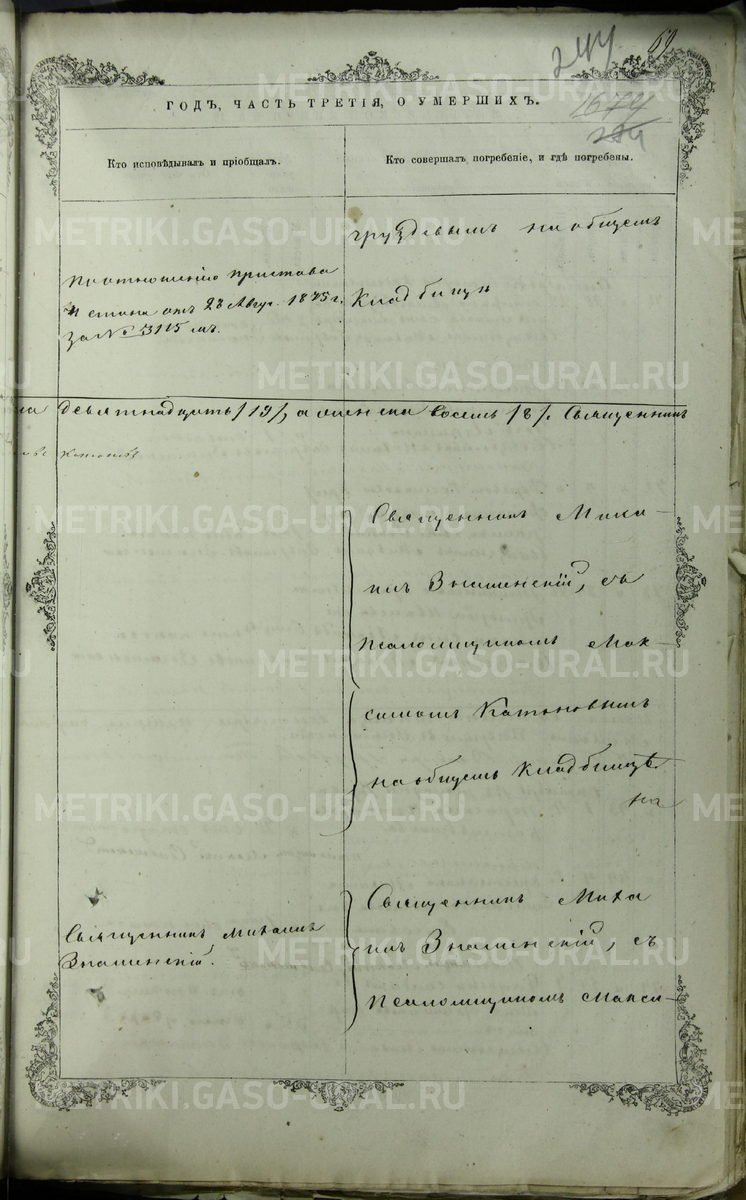 244
69
ГОДЪ, ЧАСТЬ ТРЕТІЯ, О УМЕРШИХЪ.
1674
Кто исповѣдывалъ и пріобщалъ.
Кто совершалъ погребеніе, и гдѣ погребены.
груздевымъ на общемъ
По отношенію пристава
4 стана отъ 28 Авгус. 1875 г.
за № 3115 мъ.
кладбищѣ
девятнадцать /19/, а женска восемь /8/. Священникъ
Священникъ Миха-
илъ Знаменскій, съ
Псаломщикомъ Мак-
симомъ Катановымъ
на общемъ кладбищѣ.
Священникъ Михаилъ
Знаменскій.
Священникъ Миха
илъ Знаменскій, съ
Псаломщикомъ Макси-
METRIKI.GASO-URAL.RU